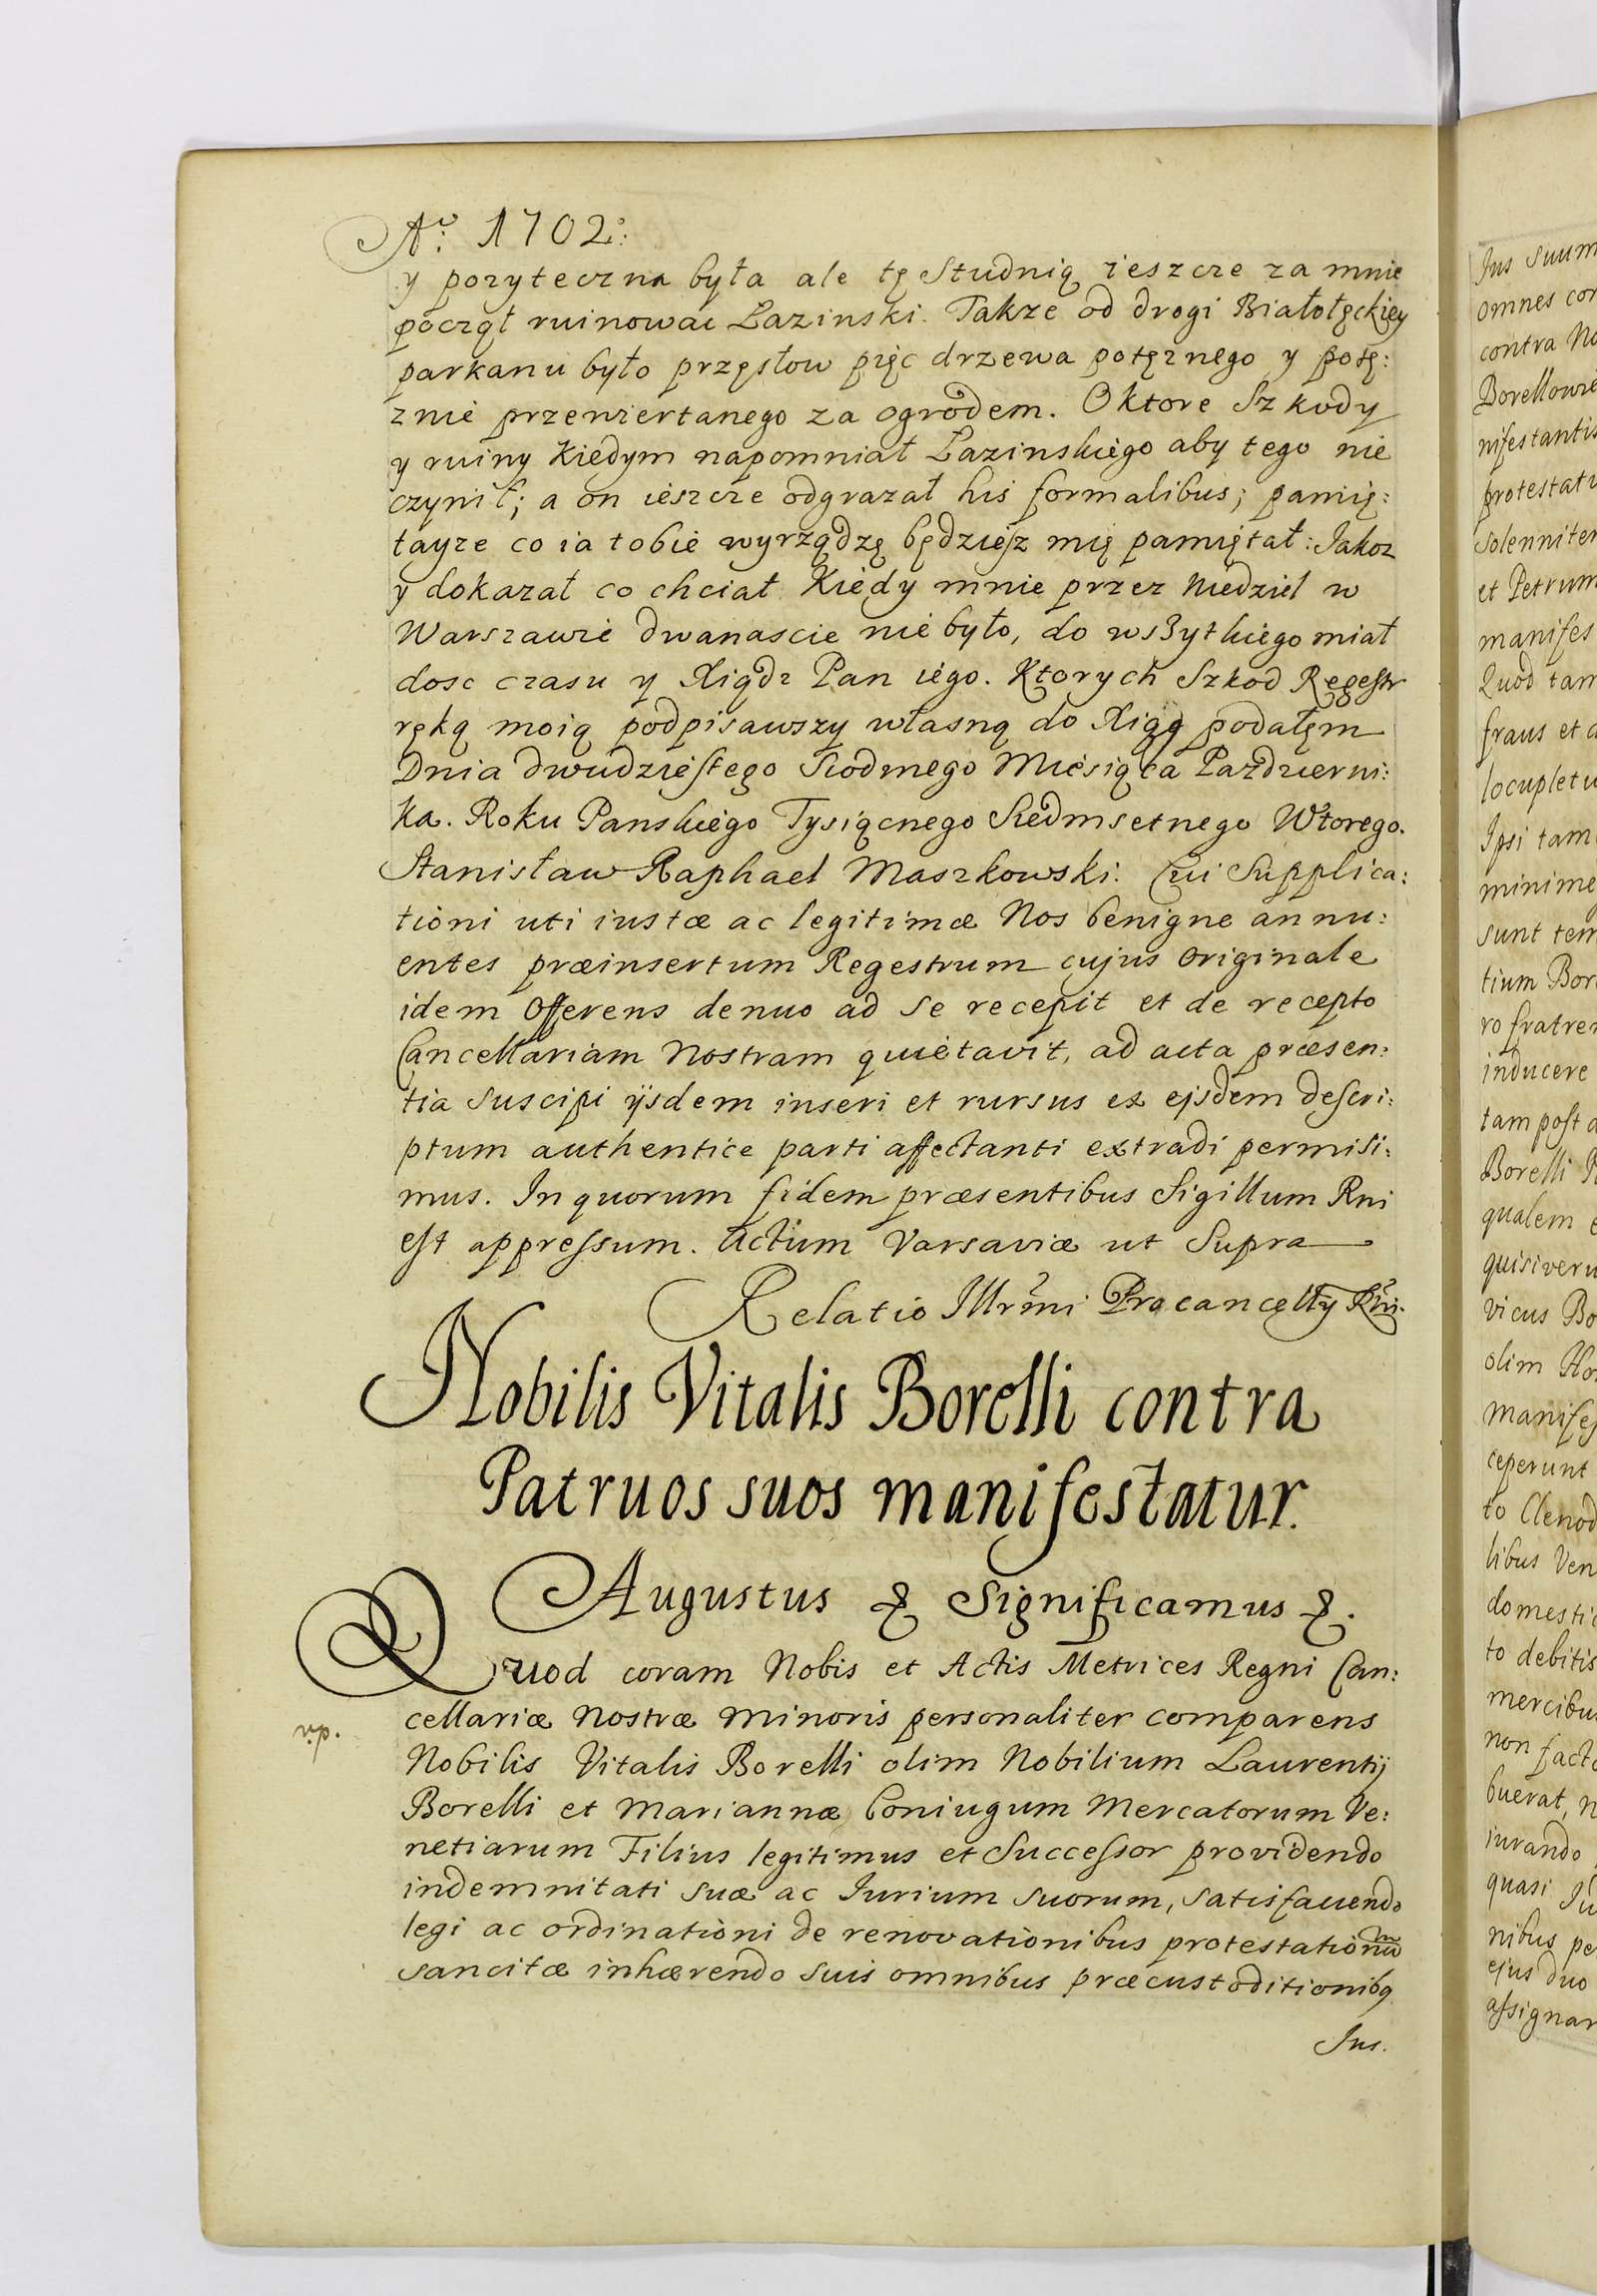 Aº. 1702.
y pozyteczna była ale tę Studnią ieszcze za mnie
począł ruinowac Łazinski. Takze od drogi Białołęckiey
parkanu było przęsłow pięc drzewa potęznego y potę:
znie przewiertanego za ogrodem. O ktore Szkody
y ruiny Kiedym napomniał Łazinskiego aby tego nie
czynił; a on ieszcze odgrazał his formalibus; pamię:
tayze co ia tobie wyrządzę będziesz mię pamiętał: Jakoz
y dokazał co chciał Kiedy mnie przez Niedziel w
Warszawie dwanascie nie było, do wszytkiego miał
dosc czasu y Xiądz Pan iego. Ktorych Szkod Regestr
ręką moią podpisawszy własną do Xiąg podałęm
Dnia dwudziestego Siodmego Miesiąca Pazdzierni:
ka. Roku Panskiego Tysiącnego Siedmsetnego Wtorego.
Stanisław Raphael Maszkowski. Cui Supplica:
tioni uti iustæ ac legitimæ Nos benigne annu:
entes præinsertum Regestrum cujus Originale
idem Offerens denuo ad se recepit et de recepto
Cancellariam Nostram quietavit, ad acta præsen:
tia suscipi ijsdem inseri et rursus ex ejsdem descri:
ptum authentice parti affectanti extradi permisi:
mus. In quorum fidem præsentibus Sigillum Rni
est appressum. Actum Varsaviæ ut Supra
Relatio Illrmi Procancellrÿ Rni.
Nobilis Vitalis Borelli contra
Patruos suos manifestatur.
Augustus & Significamus &.
Quod coram Nobis et Actis Metrices Regni Can:
cellariæ Nostræ Minoris personaliter comparens
Nobilis Vitalis Borelli olim Nobilium Laurentij
Borelli et Mariannæ Coniugum Mercatorum Ve:
netiarum Filius legitimus et Successor providendo
indemnitati suæ ac Iurium suorum, satisfaciendo
legi ac ordinationi de renovationibus protestationum
sancitæ inhærendo suis omnibus præcustoditionibq
Jus.
Jus suum
omnes con
contra No
Borellowie
nifestantis
protestatu
Solenniter
et Petrum
manifes
Quod tam
fraus et d
locupletu
Ipsi tam
minime
sunt tem
tium Bor
ro fratrem
inducere
tam post
Borelli
qualem
quisiveru
vicus Bo
olim
manifes
ceperunt
to Clenod
libus Ven
domestic
to debitis
mercibus
non facto
buerat, n
iurando
quasi Ju
nibus pe
ejus duo
assignar